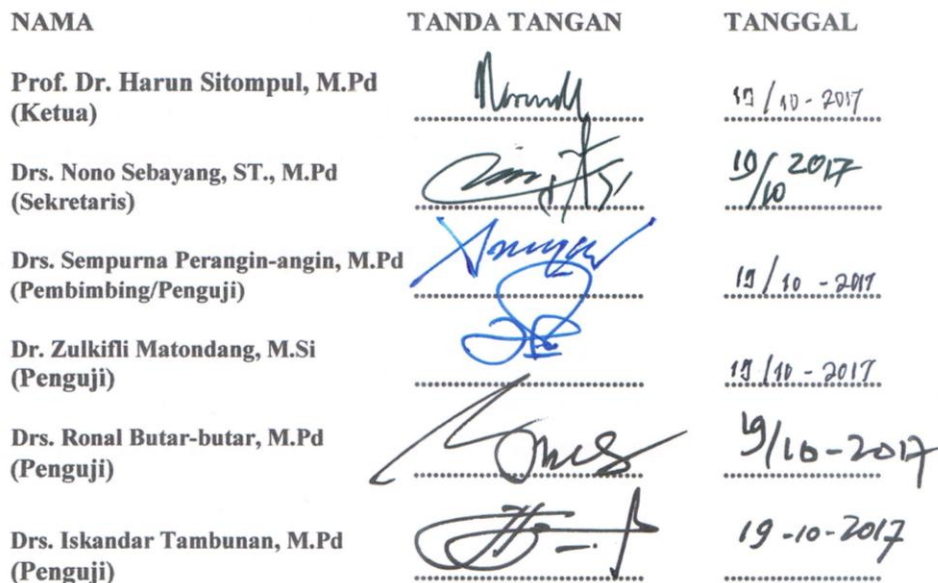 NAMA TANDA TANGAN TANGGAL
Prof. Dr. Harun Sitompul, M.Pd
(Ketua) 19/10-2017
Drs. Nono Sebayang, ST., M.Pd 19/10 2017
(Sekretaris)
Drs. Sempurna Perangin-angin, M.Pd
(Pembimbing/Penguji) 19/10-2017
Dr. Zulkifli Matondang, M.Si
(Penguji) 19/10-2017
Drs. Ronal Butar-butar, M.Pd 19/10-2017
(Penguji)
Drs. Iskandar Tambunan, M.Pd 19-10-2017
(Penguji)